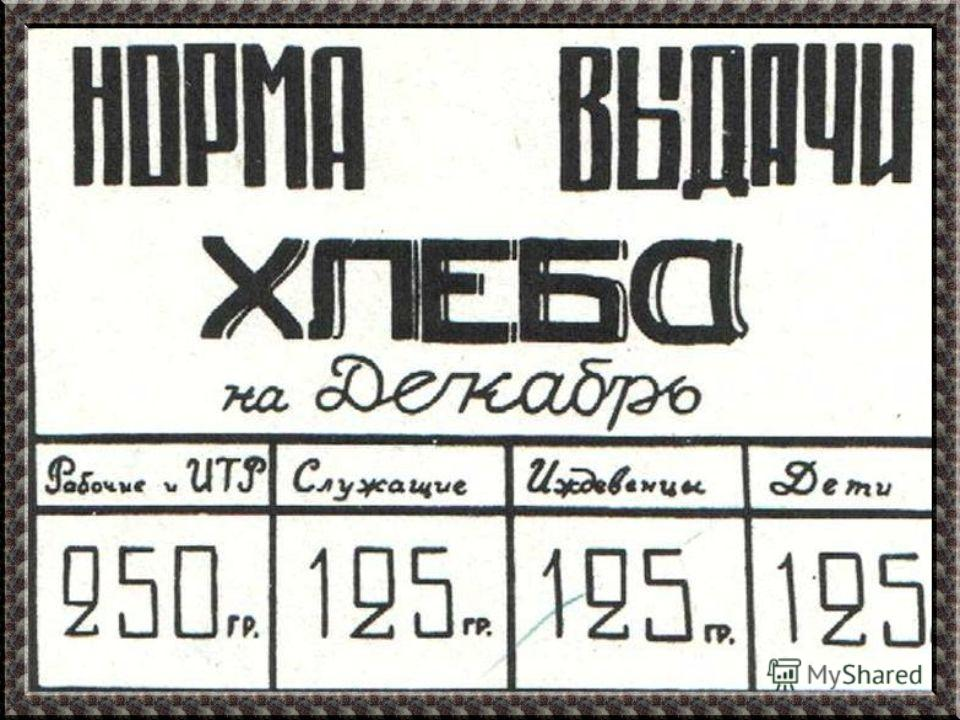 НОРМА ВЫДАЧИ
ХЛЕБА
на Декабрь
Рабочие и ИТР Служащие Иждевенцы Дети
250 гр. 125 гр. 125 гр. 125
MyShared